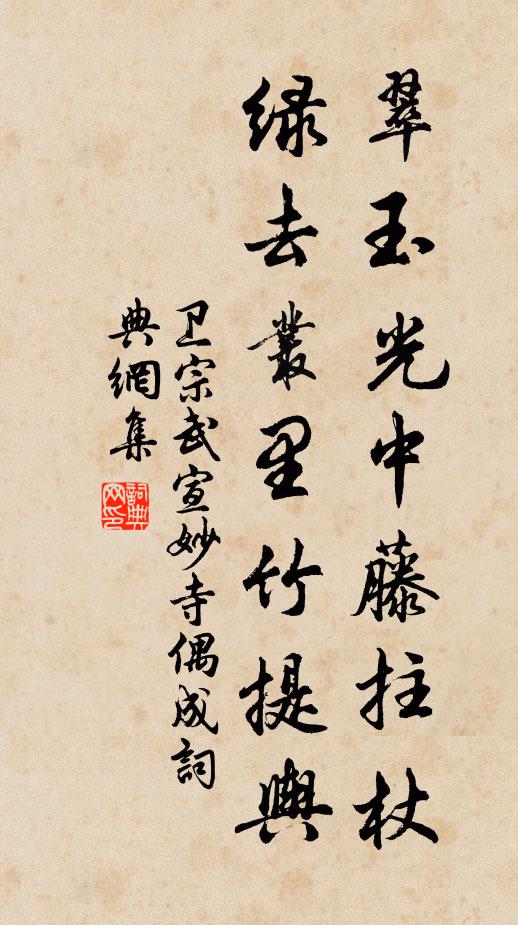 翠玉光中藤拄杖
绿去叢里竹提輿
卫宗武宣妙寺偶成詞
典網集
詞典
网印